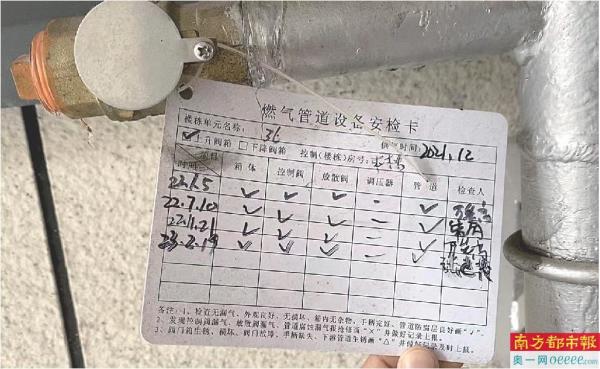 燃气管道设备安检卡
楼栋单元名称： 36
✓上升阀箱 □下降阀箱 控制（楼栋）房号： 供气时间：2021.12
项目 时间 箱体 控制阀 放散阀 调压器 管道 检查人
22.1.5 ✓ ✓ ✓ - ✓
22.7.10 ✓ ✓ ✓ - ✓
22.11.21 ✓ ✓ ✓ - ✓
23.2.19 ✓ ✓ ✓ - ✓
备注：1、检查无漏气、外观良好、无损坏、箱内无杂物、手柄完好、管道防腐层良好画“√”。
2、发现控制阀漏气、放散阀漏气、管道腐蚀漏气报抢修画“×”并做好记录上报。
3、阀门箱生锈、损坏、阀门故障、手柄缺失、下游管道生锈画“△”并做好记录及时上报。
南方都市报
奥一网oeeee.com